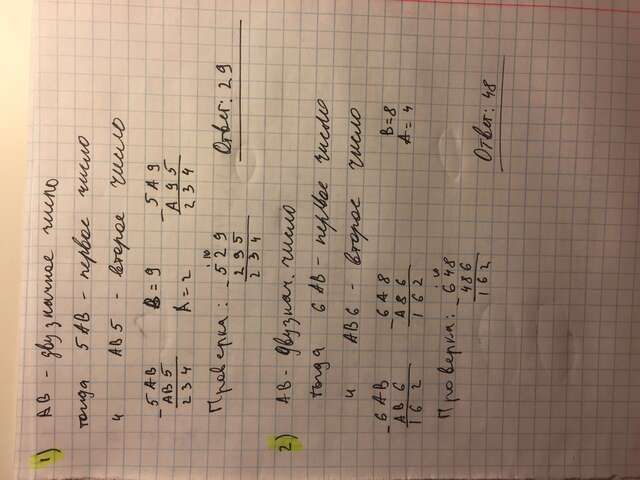 1) AB - двузначное число
тогда 5AB - первое число
и AB5 - второе число
- 5AB B = 9 - 5A9
AB5 A = 2 A95
234 234
Проверка: - 529 Ответ: 29
295
234
2) AB - двузнач. число
тогда 6AB - первое число
и AB6 - второе число
- 6AB - 6A8 B = 8
AB6 A86 A = 4
162 162
Проверка: - 648
486
162 Ответ: 48